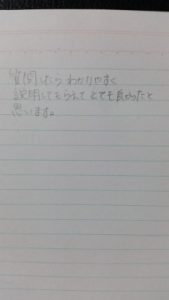 質問したら わかりやすく
説明してもらえて とても良かったと
思います。